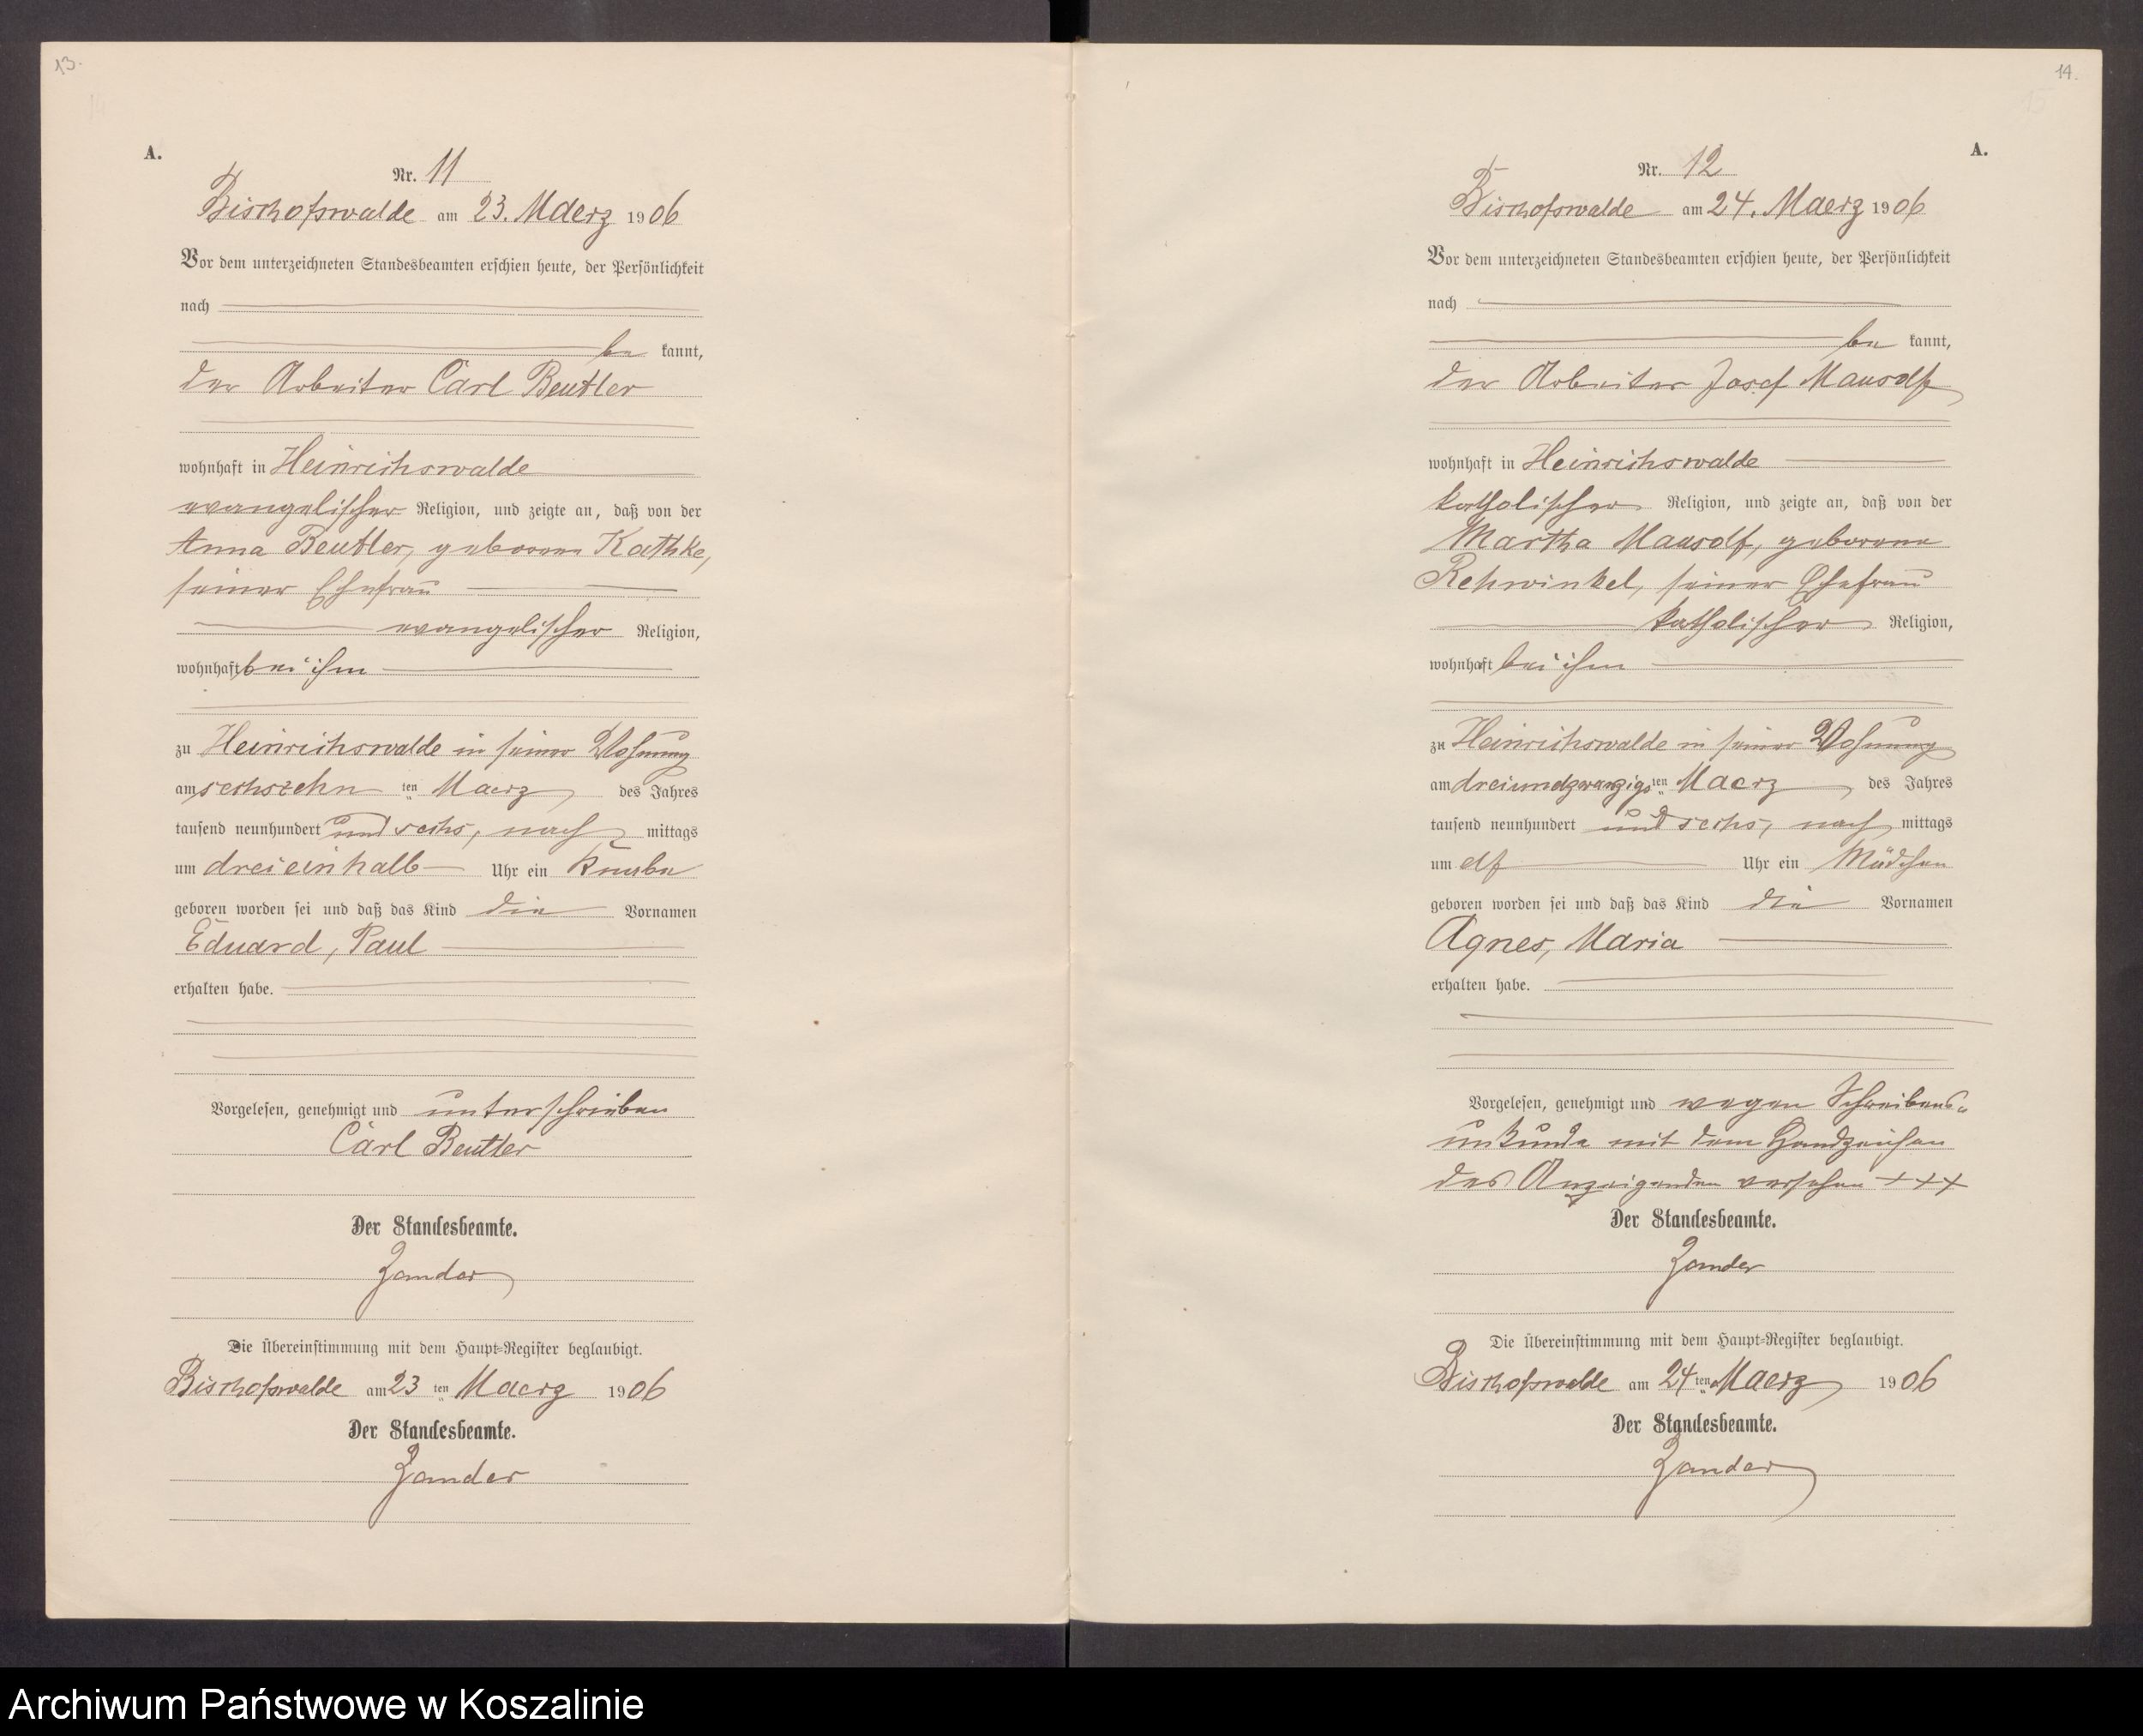 13.
A.
Nr. 11
Bischofswalde am 23. Maerz 1906
Vor dem unterzeichneten Standesbeamten erschien heute, der Persönlichkeit
nach
be kannt,
der Arbeiter Carl Beutler
wohnhaft in Heinrichswalde
evangelischer Religion, und zeigte an, daß von der
Anna Beutler, geborene Kathke,
seiner Ehefrau
evangelischer Religion,
wohnhaft bei ihm
zu Heinrichswalde in seiner Wohnung
am sechszehn ten Maerz des Jahres
tausend neunhundert und sechs, nach mittags
um dreieinhalb Uhr ein Knabe
geboren worden sei und daß das Kind die Vornamen
Eduard, Paul
erhalten habe.
Vorgelesen, genehmigt und unterschrieben
Carl Beutler
Der Standesbeamte.
Zander
Die Übereinstimmung mit dem Haupt-Register beglaubigt.
Bischofswalde am 23 ten Maerz 1906
Der Standesbeamte.
Zander
14.
A.
Nr. 12
Bischofswalde am 24. Maerz 1906
Vor dem unterzeichneten Standesbeamten erschien heute, der Persönlichkeit
nach
be kannt,
der Arbeiter Josef Mausolf
wohnhaft in Heinrichswalde
katholischer Religion, und zeigte an, daß von der
Martha Mausolf, geborene
Rehwinkel, seiner Ehefrau
katholischer Religion,
wohnhaft bei ihm
zu Heinrichswalde in seiner Wohnung
am dreiundzwanzigs ten Maerz des Jahres
tausend neunhundert und sechs, nach mittags
um elf Uhr ein Mädchen
geboren worden sei und daß das Kind die Vornamen
Agnes, Maria
erhalten habe.
Vorgelesen, genehmigt und wegen Schreibens-
unkunde mit dem Handzeichen
des Anzeigenden versehen +++
Der Standesbeamte.
Zander
Die Übereinstimmung mit dem Haupt-Register beglaubigt.
Bischofswalde am 24 ten Maerz 1906
Der Standesbeamte.
Zander
Archiwum Państwowe w Koszalinie